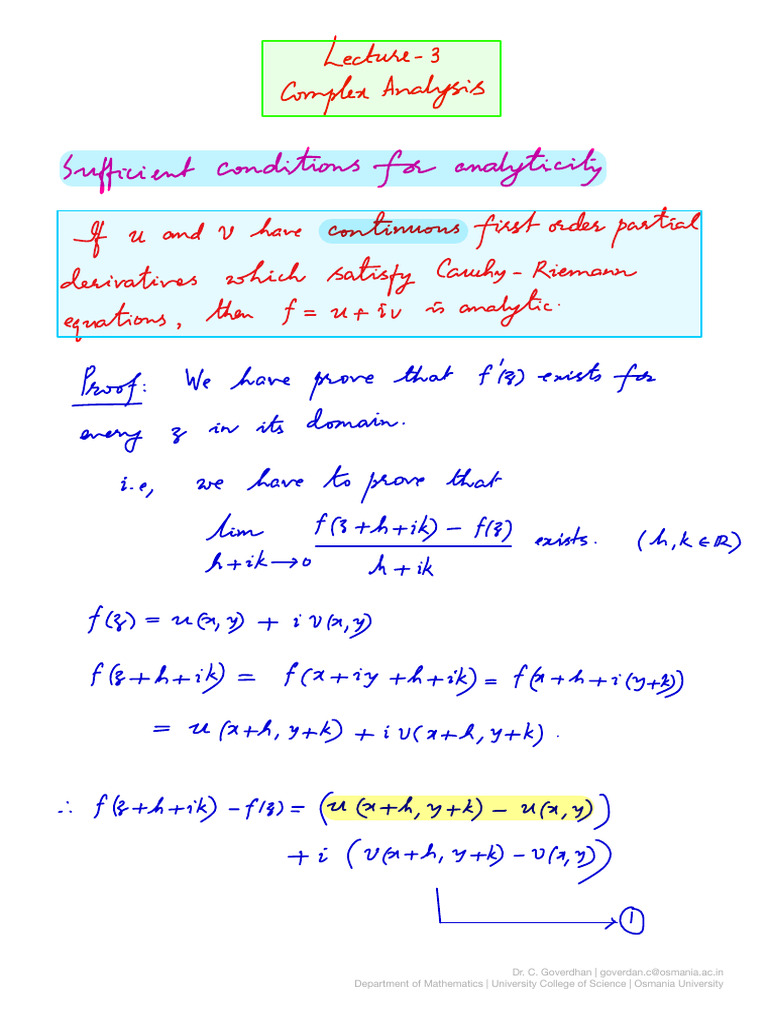 Lecture-3
Complex Analysis
Sufficient conditions for analyticity
If u and v have continuous first order partial
derivatives which satisfy Cauchy-Riemann
equations, then f = u + iv is analytic.
Proof: We have prove that f'(z) exists for
every z in its domain.
i.e, we have to prove that
lim f(z+h+ik) - f(z) exists. (h, k ∈ ℝ)
h+ik→0 h+ik
f(z) = u(x,y) + i v(x,y)
f(z+h+ik) = f(x+iy+h+ik) = f(x+h+i(y+k))
= u(x+h, y+k) + i v(x+h, y+k).
∴ f(z+h+ik) - f(z) = (u(x+h, y+k) - u(x,y))
+ i (v(x+h, y+k) - v(x,y))
→ ①
Dr. C. Goverdhan | goverdan.c@osmania.ac.in
Department of Mathematics | University College of Science | Osmania University